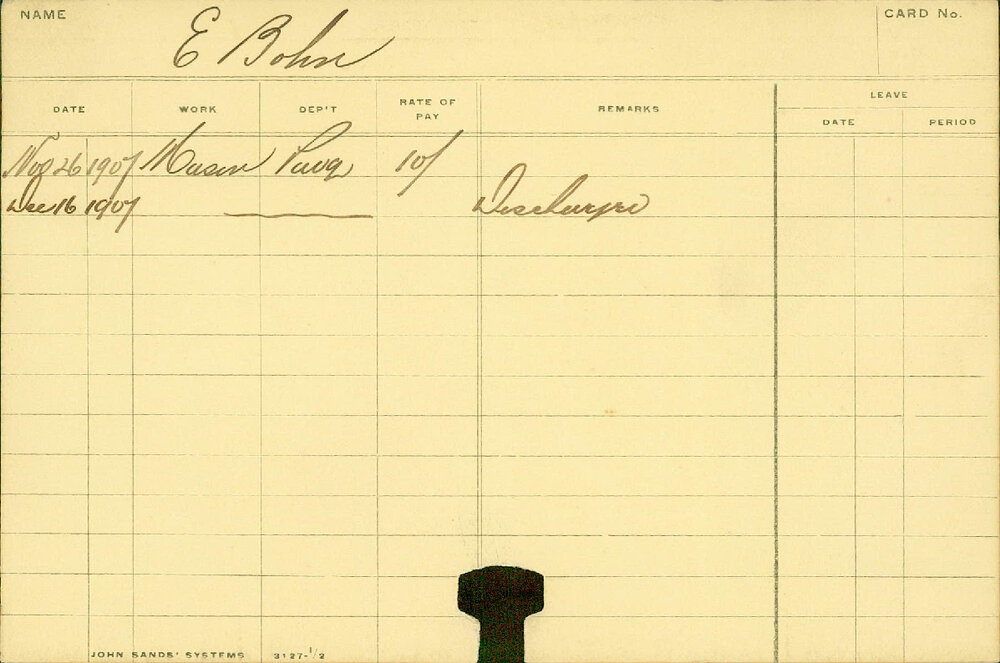 NAME E Bohn CARD No.
DATE WORK DEP'T RATE OF PAY REMARKS LEAVE
DATE PERIOD
Nov 26 1907 Mason Pavg 10/
Dec 16 1907 Discharged
JOHN SANDS' SYSTEMS 3127-1/2